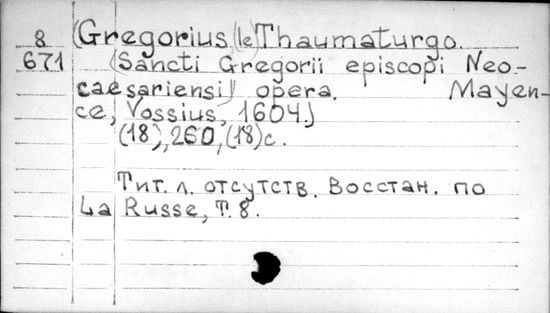 8 (Gregorius, (le) Thaumaturgo.
671 (Sancti Gregorii episcopi Neo-
caesariensi) opera. Mayen-
ce, Vossius, 1604.)
(18), 260, (18) с.
Тит. л. отсутств. Восстан. по
La Russe, т. 8.